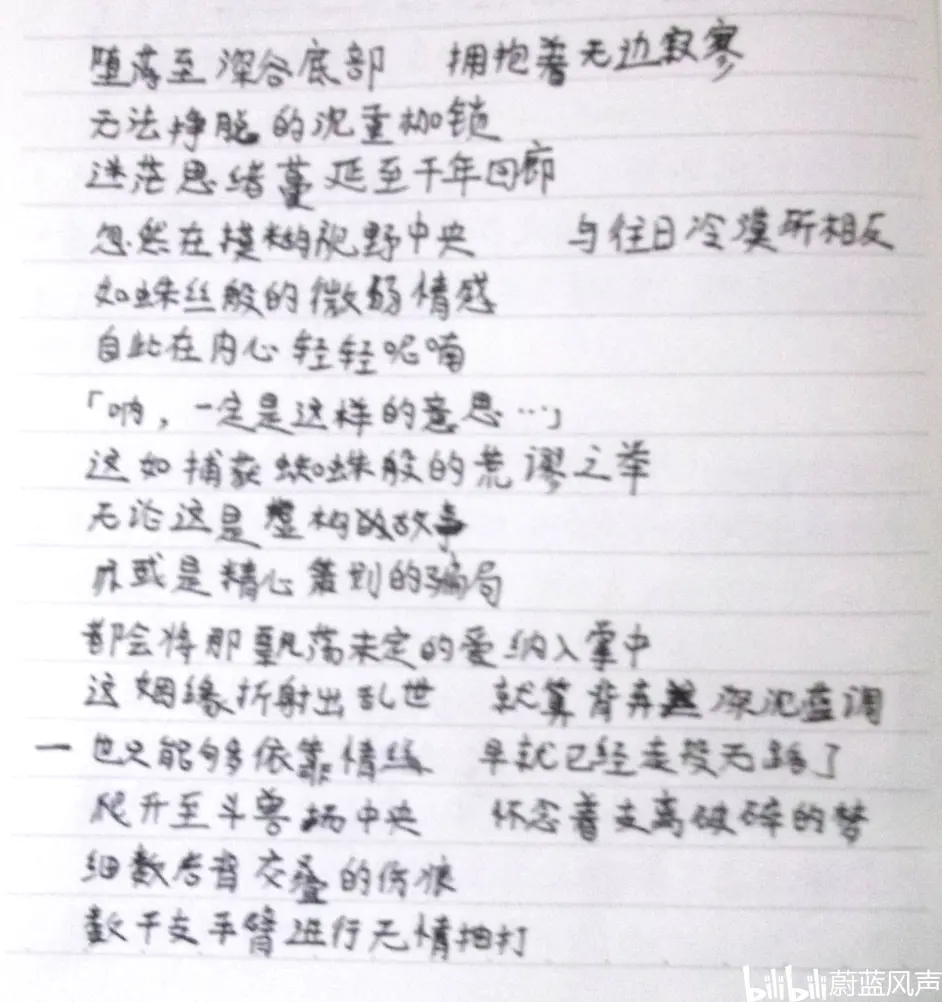 堕落至深谷底部 拥抱着无边寂寥
无法挣脱的沉重枷锁
迷茫思绪蔓延至千年回廊
忽然在模糊视野中央 与往日冷漠所相反
如蛛丝般的微弱情感
自此在内心轻轻呢喃
「呐，一定是这样的意思…」
这如捕获蜘蛛般的荒谬之举
无论这是虚构的故事
亦或是精心策划的骗局
都会将那飘荡未定的爱纳入掌中
这姻缘折射出乱世 就算背弃 深沉蓝调
一也只能够多依靠情丝 早就已经走投无路了
爬升至斗兽场中央 怀念着支离破碎的梦
细数后背交叠的伤痕
数千支手臂进行无情拍打
bilibili 蔚蓝风声